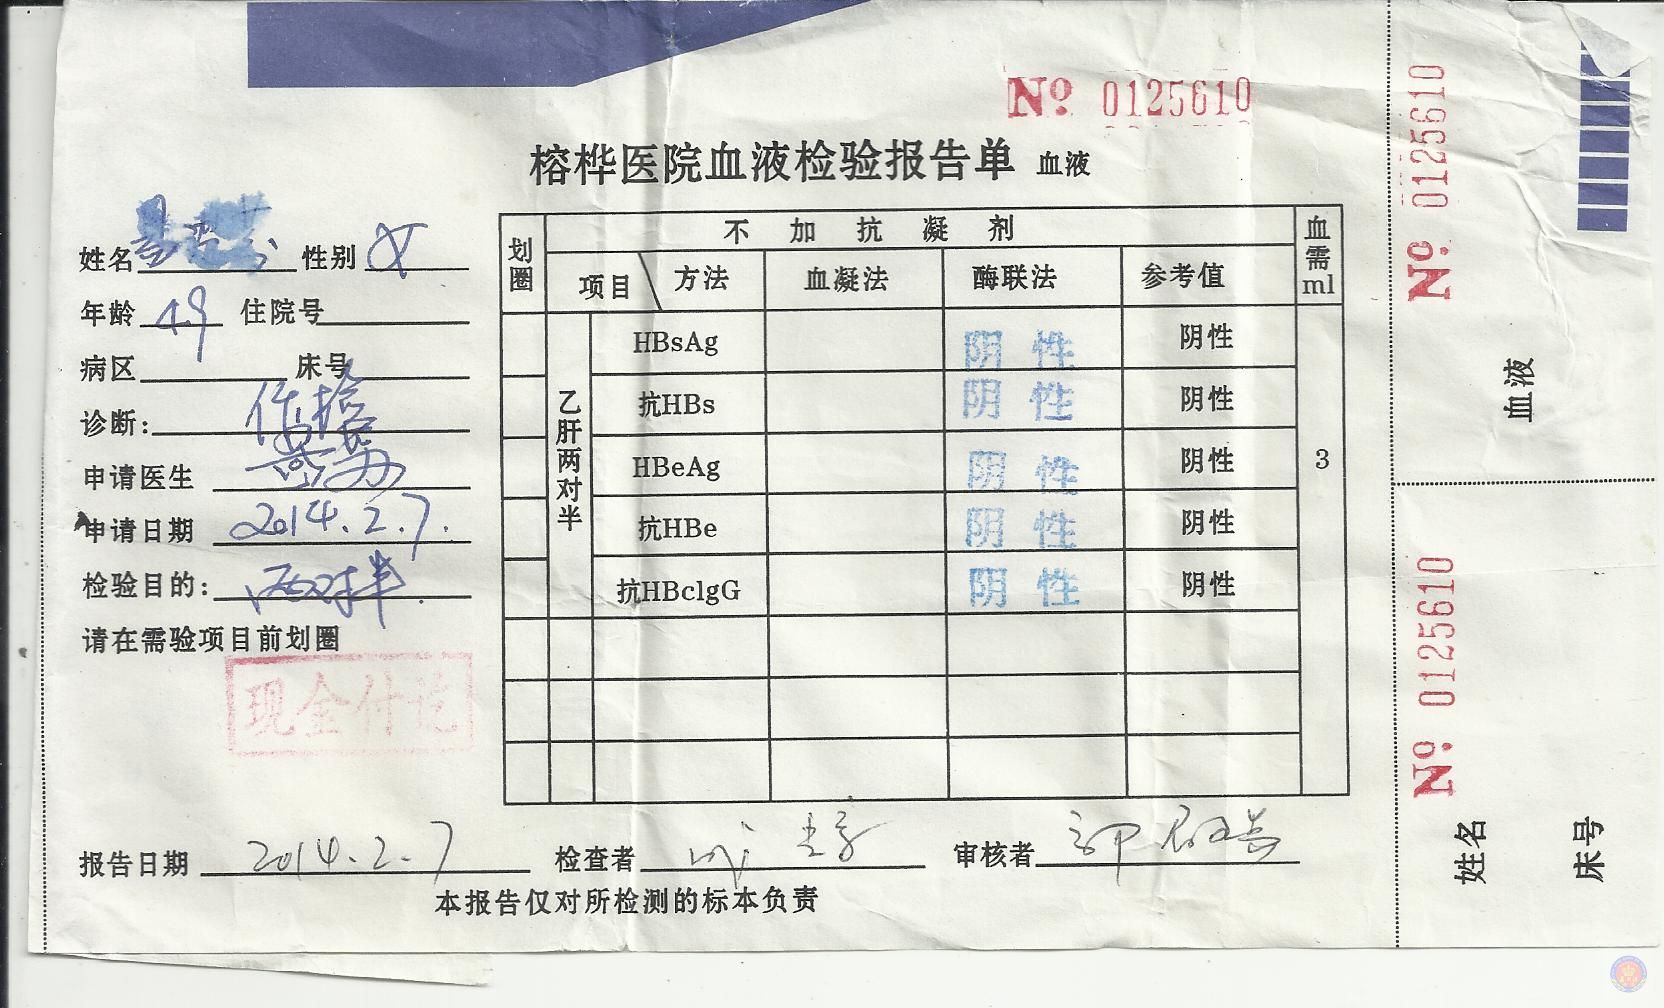 № 0125610
榕桦医院血液检验报告单 血液
姓名 性别 女
年龄 49 住院号
病区 床号
诊断: 体检
申请医生
申请日期 2014.2.7.
检验目的: 两对半.
请在需验项目前划圈
现金付讫
划圈 不加抗凝剂 血需ml
项目 方法 血凝法 酶联法 参考值
乙肝两对半
HBsAg 阴性 阴性
抗HBs 阴性 阴性
HBeAg 阴性 阴性 3
抗HBe 阴性 阴性
抗HBclgG 阴性 阴性
报告日期 2014.2.7 检查者 审核者
本报告仅对所检测的标本负责
№ 0125610
血液
№ 0125610
姓名
床号